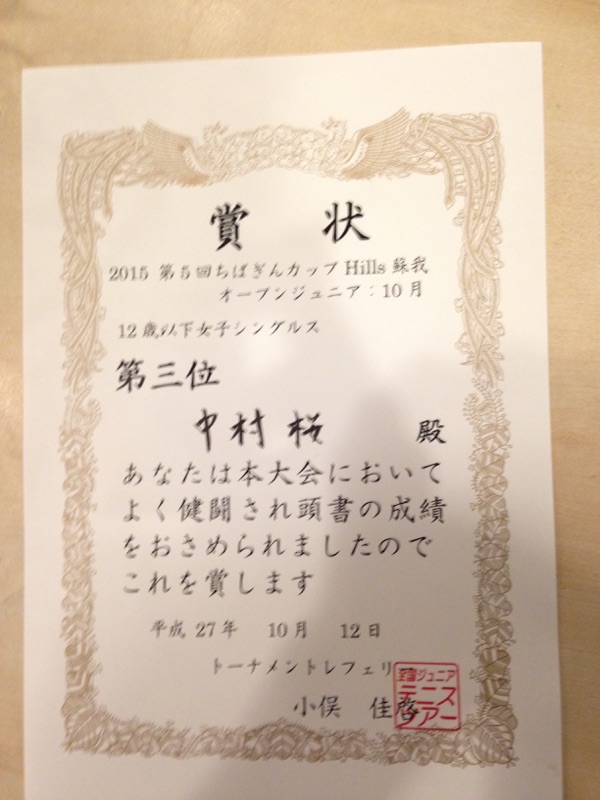 賞状
2015 第5回ちばぎんカップ Hills 蘇我
オープンジュニア:10月
12歳以下女子シングルス
第三位
中村 桜 殿
あなたは本大会において
よく健闘され頭書の成績
をおさめられましたので
これを賞します
平成 27年 10月 12日
トーナメントレフェリー
小俣 佳啓
全国ジュニア
テニス
ツアー